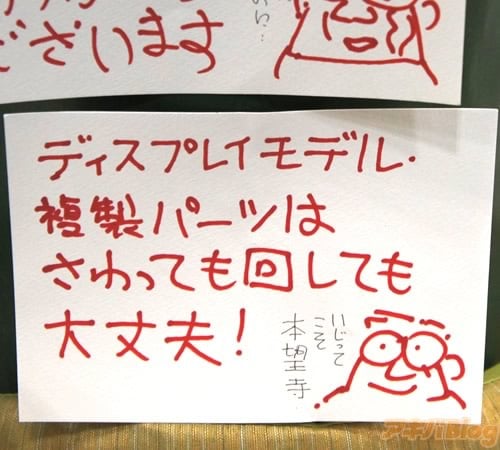 ございます
ディスプレイモデル・
複製パーツは
さわっても回しても
大丈夫!
いじって
こそ
本望寺
アキバBlog